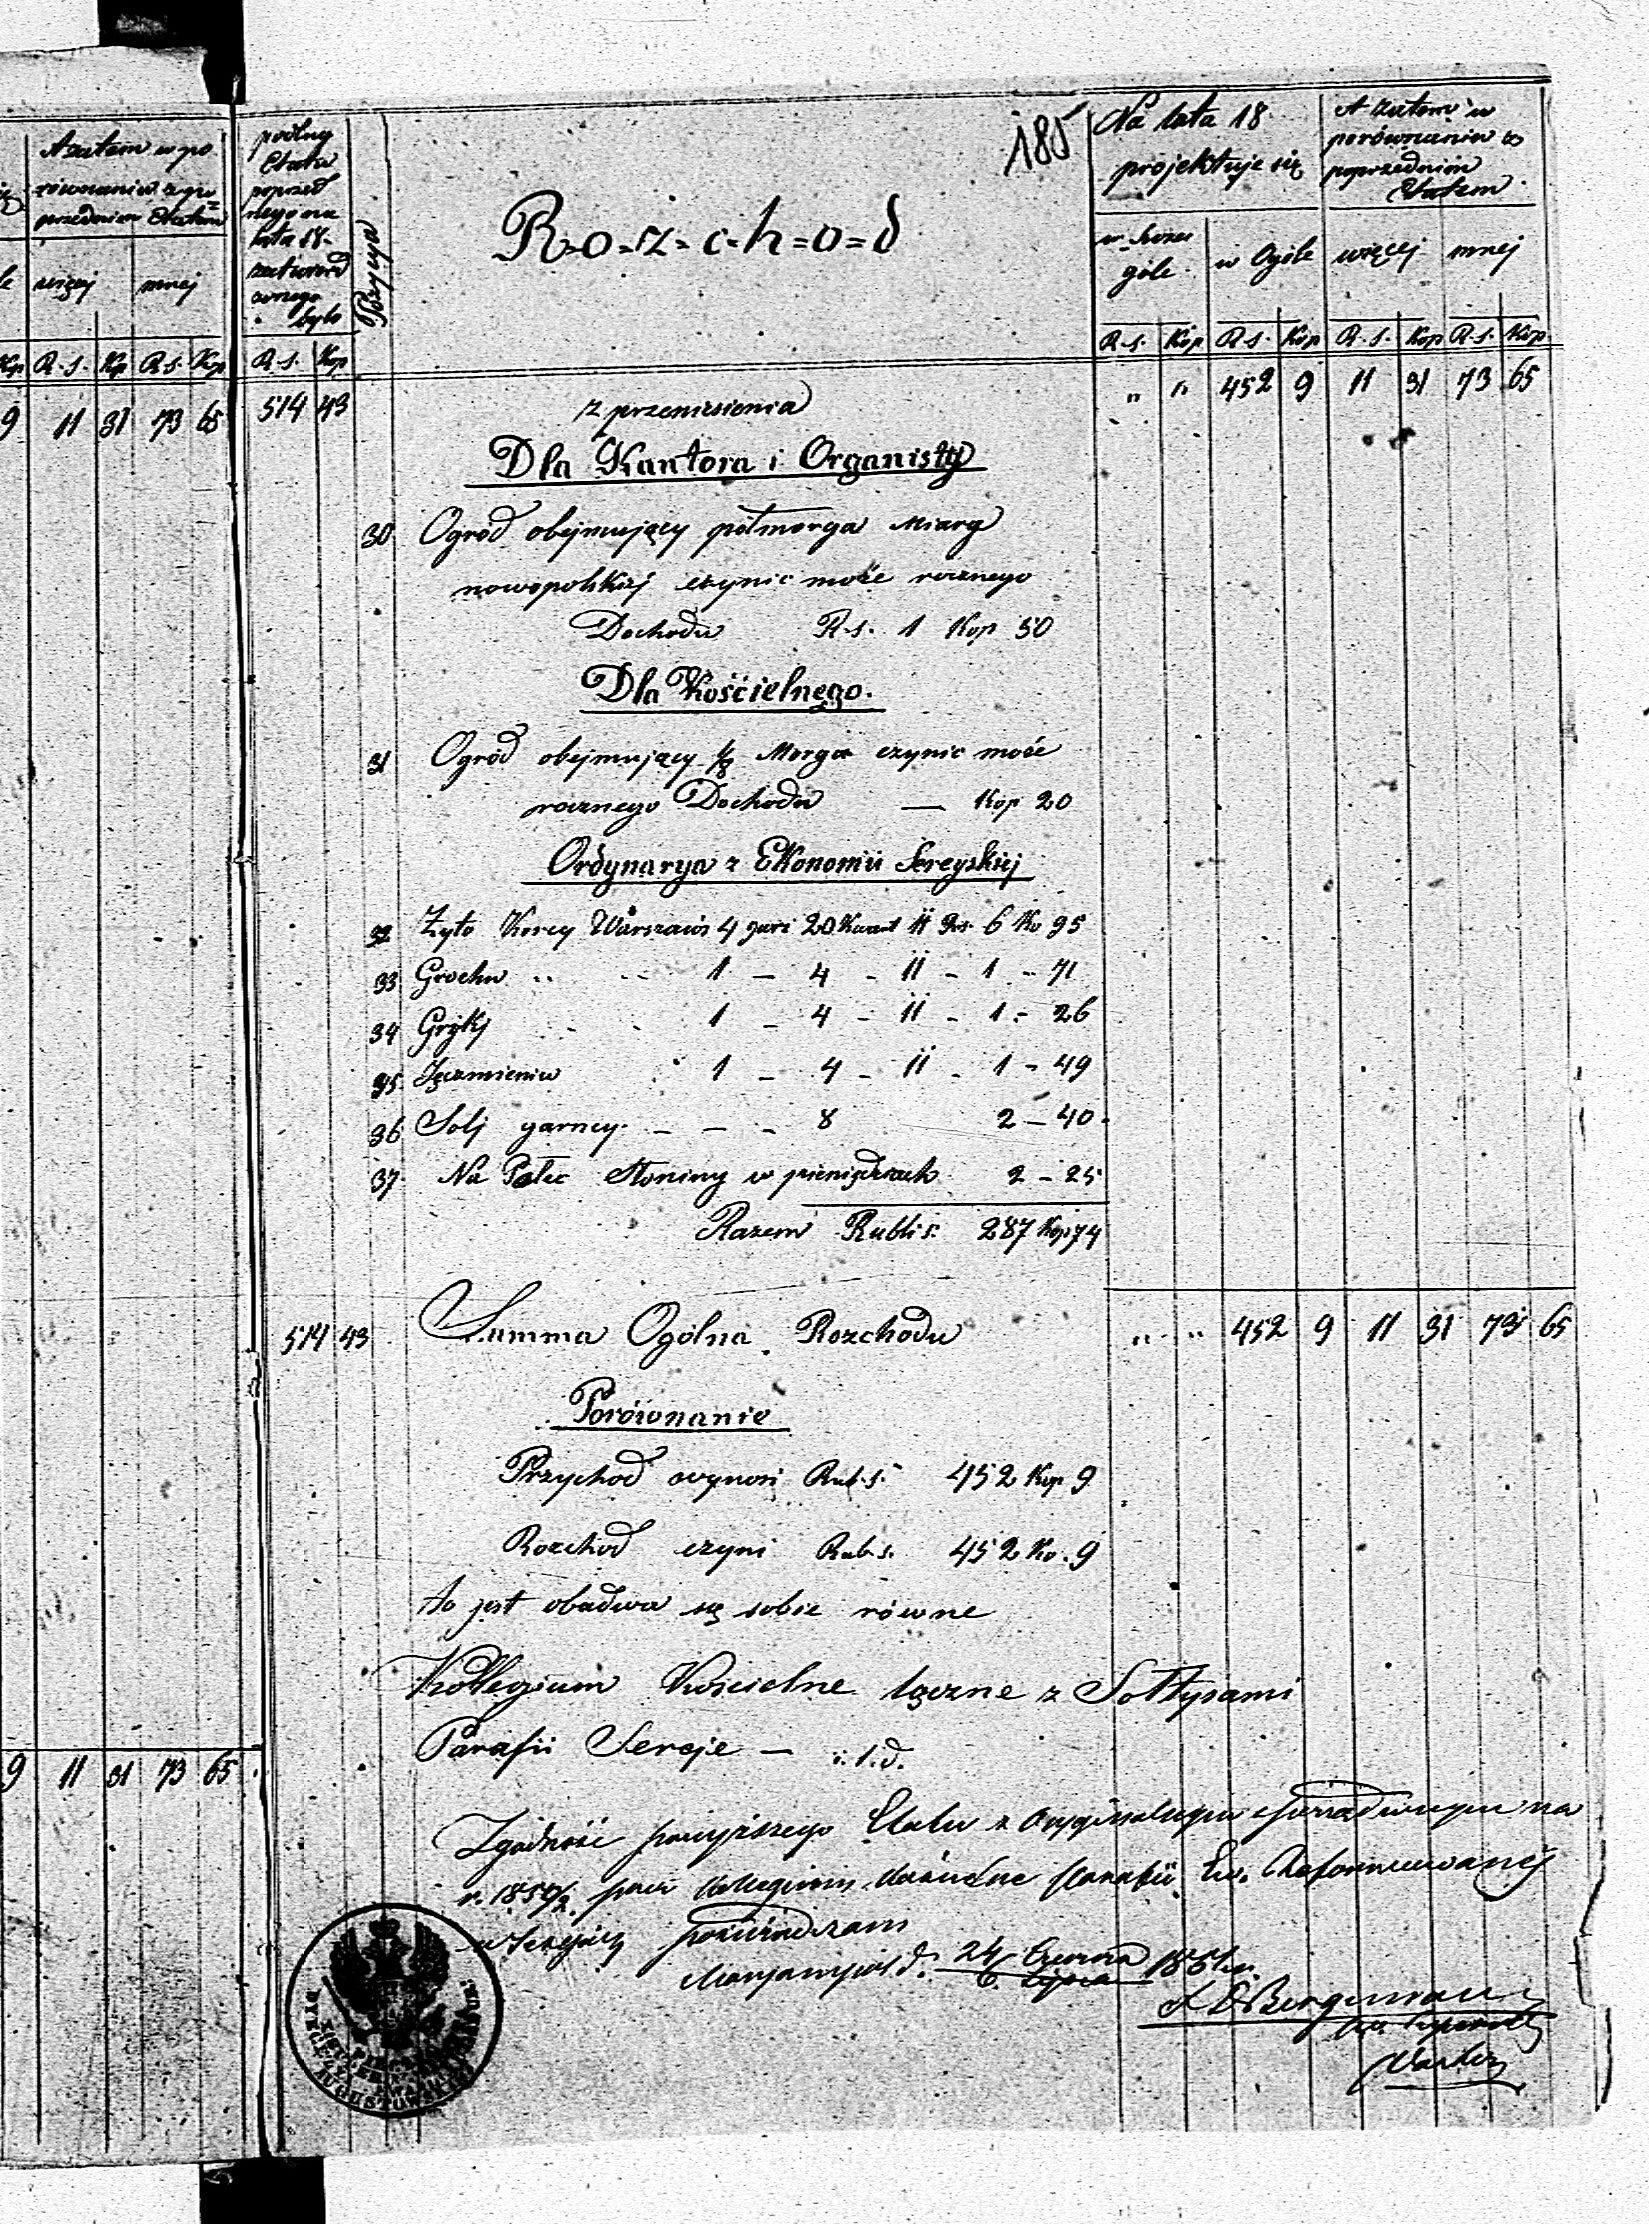 A zatem w po
równaniu z po=
przednim Etatem
więcej mniej
Kop R.s. Kp R.s. Kop
9 11 31 73 65
9 11 31 73 65
185
podług
Etatu
poprzed
niego na
lata 18
zatwierd
zonego
było
R.s. Kop
Pozycya
R=o=z=c=h=o=d
Na lata 18
projektuje się
w szcze
góle
w Ogóle
R.s. Kop R.s. Kop
A zatem w
porównaniu z
poprzednim
Etatem
więcej mniej
R.s. Kop R.s. Kop
514 43 z przeniesienia " " 452 9 11 31 73 65
Dla Kantora i Organisty
30 Ogród obejmujący półmorga Miary
nowopolskiej czynić może rocznego
Dochodu R.s. 1 Kop 50
Dla Kościelnego.
31 Ogród obejmujący 1/8 Morga czynić może
rocznego Dochodu — Kop 20
Ordynarya z Ekonomii Sereyskiej
32 Żyto Korcy Warszaws 4 garc 20 Kwart " Rs. 6 Ko 95
33 Grochu " 1 — 4 — " — 1 — 71
34 Gryki 1 — 4 — " — 1 — 26
35 Jęczmieniu 1 — 4 — " — 1 — 49
36 Soli garncy — — — 8 2 — 40
37 Na Połec Słoniny w pieniądzach 2 — 25
Razem Rubli s. 287 Kop 74
514 43 Summa Ogólna Rozchodu " " 452 9 11 31 73 65
Porównanie
Przychod wynosi Rub. s. 452 Kop 9
Rozchod czyni Rub. s. 452 Ko. 9
to jest obadwa są sobie równe
Kollegium Kościelne łącznie z Sołtysami
Parafii Sereje — i. t. d.
Zgodność powyższego Etatu z oryginalnym sporządzonym na
r. przez Kollegium Kościelne Parafii Ew. Reformowanej
w Serejach poświadczam
Maryampol d. 24 Czerwca
6 Lipca 1851 r.
Bergmann
AUGUSTOWSKI